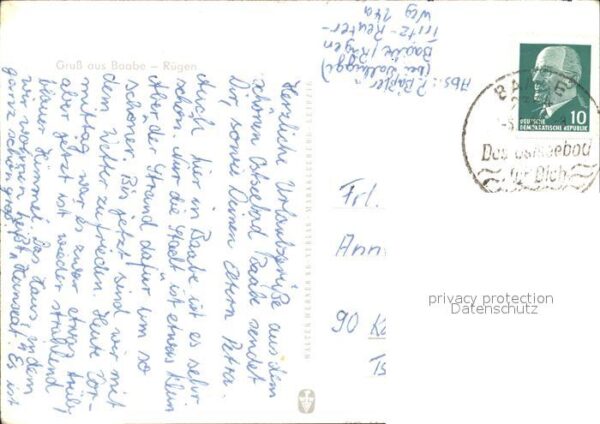 Gruß aus Baabe - Rügen
Herzliche Urlaubsgrüße aus dem
schönen Ostseebad Baabe sendet
Dir, sowie Deinen Eltern Petra.
Auch hier in Baabe ist es sehr
schön. Nur die Stadt ist etwas klein
Aber der Strand dafür um so
schöner. Bis jetzt sind wir mit
dem Wetter zufrieden. Heute Vor-
mittag war es zwar etwas trüb
aber jetzt ist wieder strahlend
blauer Himmel. Das Haus in dem
wir wohnen heißt "Heinzeck". Es ist
ganz schön groß.
Abs.: P.
Baabe / Rügen
Fritz-Reuter-
Weg 24a
DEUTSCHE
DEMOKRATISCHE REPUBLIK
10
BAABE
Das Ostseebad
für Dich
Frl.
Ann
90 K
privacy protection
Datenschutz